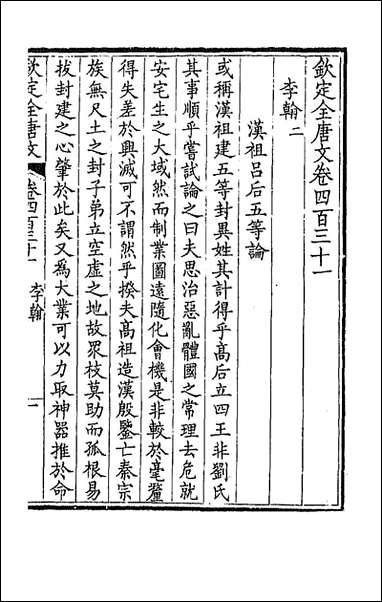 欽定全唐文卷四百三十一
李翰二
漢祖呂后五等論
或稱漢祖建五等封異姓其計得乎髙后立四王非劉氏
其事順乎嘗試論之曰夫思治惡亂體國之常理去危就
安宅生之大域然而制業圖遠隨化會機是非較於毫釐
得失差於興滅可不謂然乎揆夫髙祖造漢殷鑒亡秦宗
族無尺土之封子弟立空虛之地故衆枝莫助而孤根易
拔封建之心肇於此矣又為大業可以力取神器推於命
欽定全唐文
卷四百三十一 李翰
一